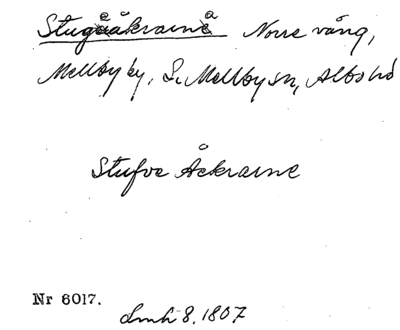 Stugeåkrainå Norre vång,
Mellby by, S. Mellby sn, Albo hd
Stufve Åckraine
Nr 6017.
Lmh 8. 1807